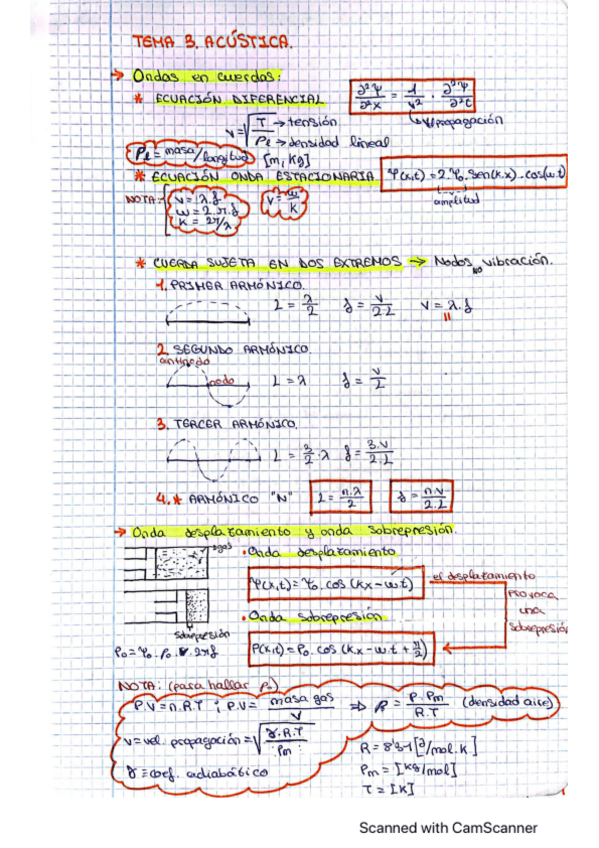 TEMA 3. ACÚSTICA.
→ Ondas en cuerdas:
* ECUACIÓN DIFERENCIAL ∂²Ψ/∂²x = 1/v² · ∂²Ψ/∂²t
v = √(T/Pl) → tensión → densidad lineal
Pl = masa/longitud [m, kg]
* ECUACIÓN ONDA ESTACIONARIA Ψ(x,t) = 2·Ψ₀·sen(k·x)·cos(ω·t)
amplitud
NOTA: v = λ·f
ω = 2·π·f
k = 2π/λ
v = ω/k
* CUERDA SUJETA EN DOS EXTREMOS → Nodos no vibración.
1. PRIMER ARMÓNICO.
L = λ/2 f = v/2·L v = λ·f
2. SEGUNDO ARMÓNICO.
antinodo
nodo L = λ f = v/L
3. TERCER ARMÓNICO.
L = 3/2·λ f = 3·v/2·L
4. * ARMÓNICO "N" L = n·λ/2 f = n·v/2·L
→ Onda desplazamiento y onda sobrepresión.
gas
• Onda desplazamiento
Ψ(x,t) = Ψ₀·cos(kx-ωt) el desplazamiento
provoca
una
sobrepresión
• Onda sobrepresión
sobrepresión
P(x,t) = P₀·cos(kx-ω·t+π/2)
NOTA: (para hallar
P·V = n·R·T ; P·V = masa gas/ ⇒ P = P·Pm/R·T (densidad aire)
v = vel. propagación = √(γ·R·T/Pm)
γ = coef. adiabático
R = 8'31 [J/mol·K]
Pm = [kg/mol]
T = [K]
Scanned with CamScanner